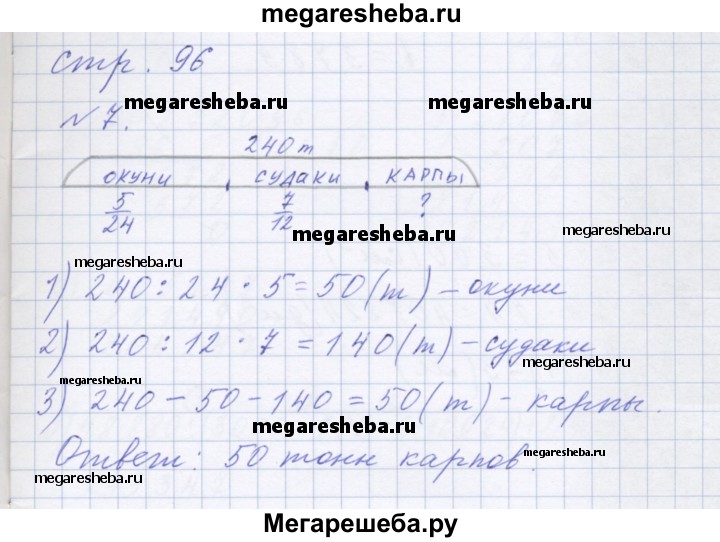 megaresheba.ru
стр. 96
megaresheba.ru megaresheba.ru
№7.
240 т
ОКУНИ СУДАКИ КАРПЫ
5/24 7/12 ?
megaresheba.ru megaresheba.ru
megaresheba.ru
1) 240 : 24 · 5 = 50 (т) – окуни
2) 240 : 12 · 7 = 140 (т) – судаки
megaresheba.ru megaresheba.ru
3) 240 – 50 – 140 = 50 (т) – карпы.
megaresheba.ru
Ответ: 50 тонн карпов.
megaresheba.ru megaresheba.ru
Мегарешеба.ру